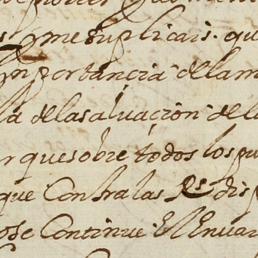 y me suplicais. que
importancia de la m
la de la saluación de l
or que sobre todos los pu
que Contra las Rs. dis
ose Continue El Enuar